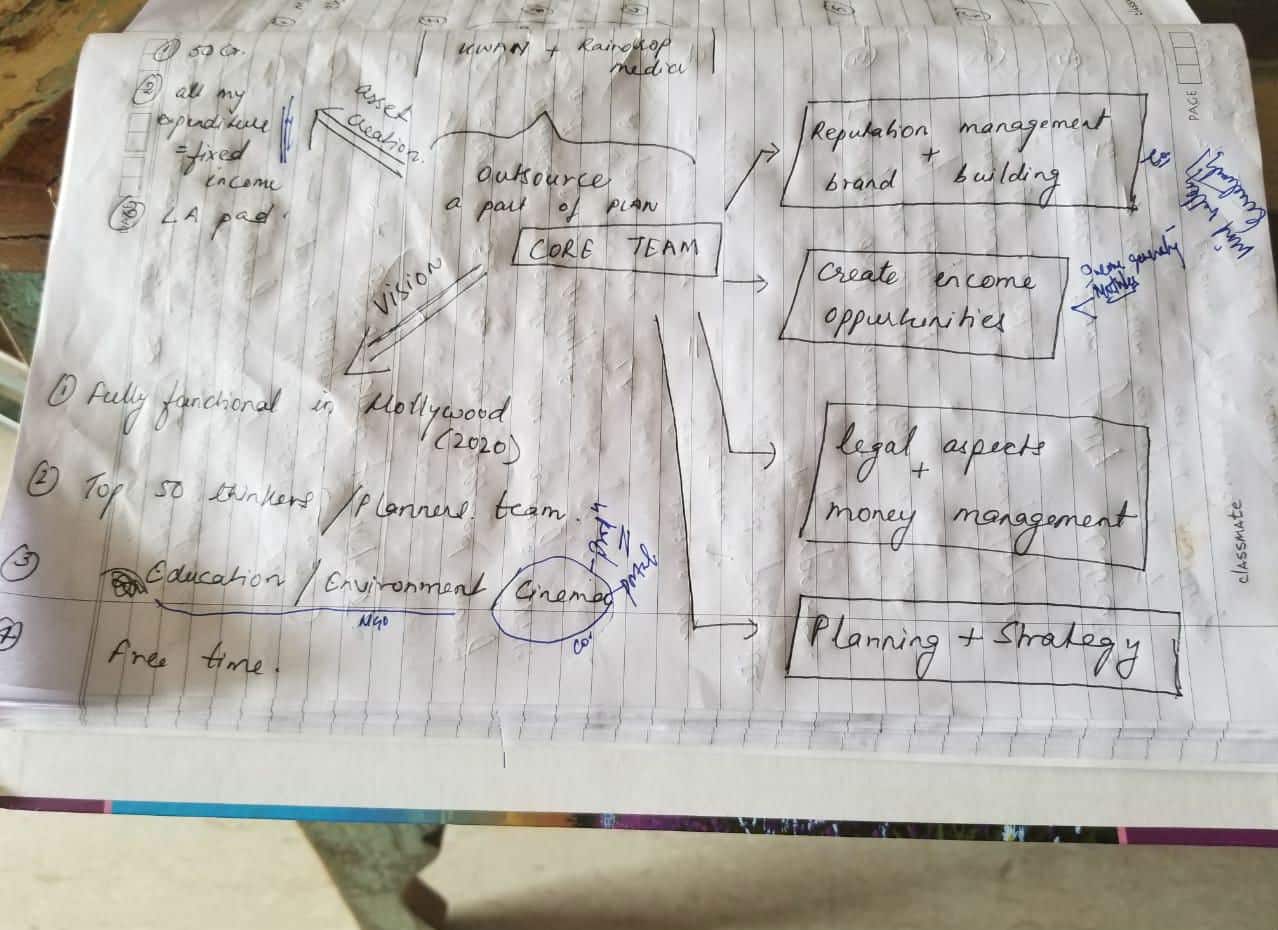 ① 50 Cr.
② all my
expenditure
= fixed
income
③ LA pad.
asset
creation.
KWAN + Raindrop
media
outsource
a part of PLAN
CORE TEAM
Vision
① Fully functional in Hollywood
(2020)
② Top 50 thinkers / Planners team.
③ Education / Environment
NGO
Cinema
Co.
portal
free time.
Reputation management
+
brand building
Create income
oppurtunities
Income generating
legal aspects
+
money management
Planning + Strategy
PAGE
classmate